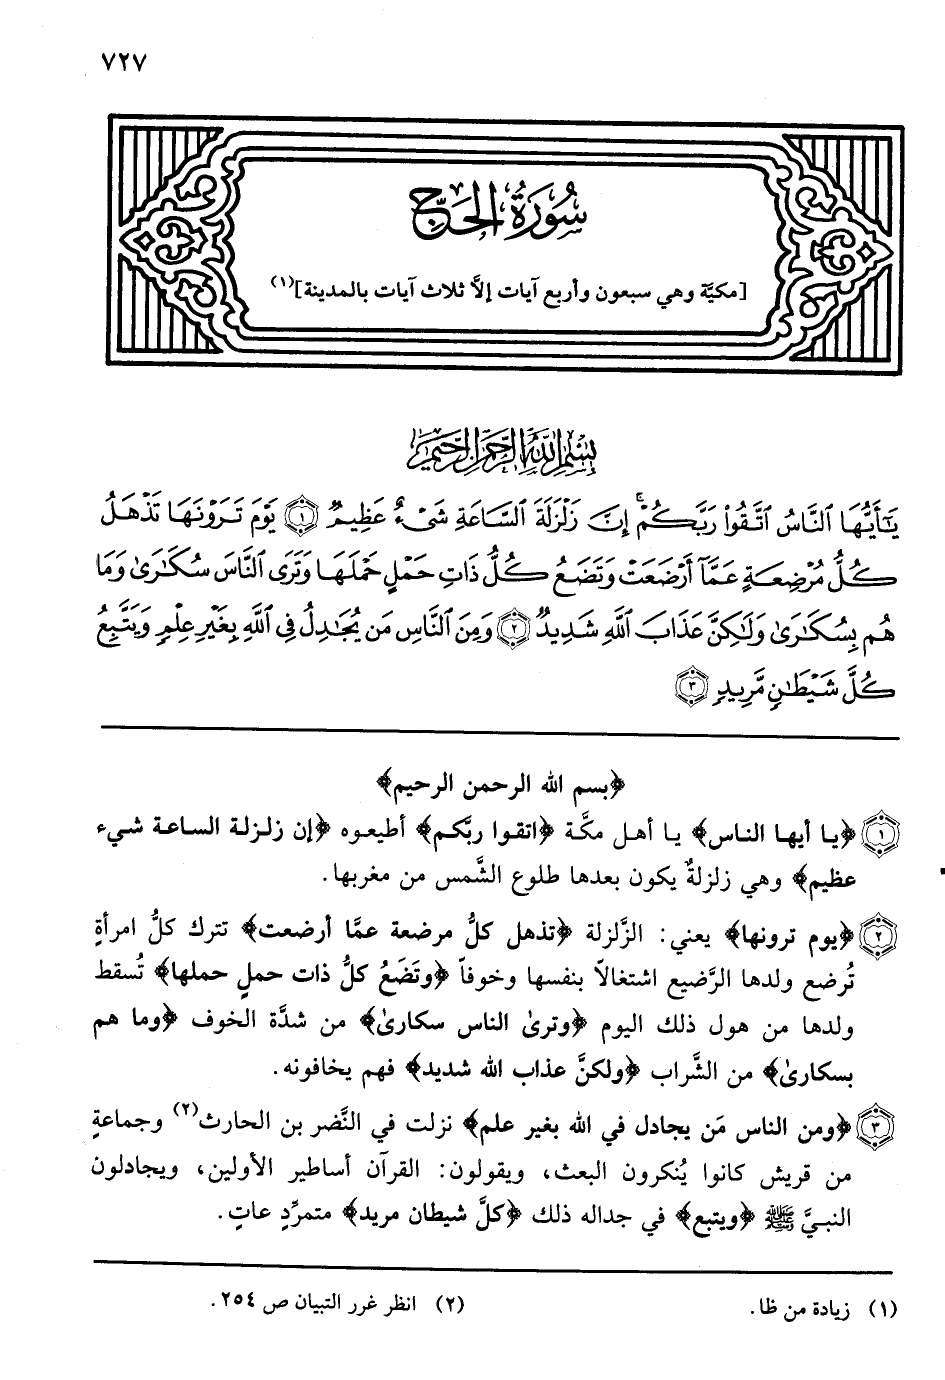 ٧٢٧
سُورَةُ الحَجِّ
[مكيَّة وهي سبعون وأربع آيات إلاَّ ثلاث آيات بالمدينة](١)
بِسْمِ اللَّهِ الرَّحْمَٰنِ الرَّحِيمِ
يَٰٓأَيُّهَا ٱلنَّاسُ ٱتَّقُوا۟ رَبَّكُمْ ۚ إِنَّ زَلْزَلَةَ ٱلسَّاعَةِ شَىْءٌ عَظِيمٌ ١ يَوْمَ تَرَوْنَهَا تَذْهَلُ
كُلُّ مُرْضِعَةٍ عَمَّآ أَرْضَعَتْ وَتَضَعُ كُلُّ ذَاتِ حَمْلٍ حَمْلَهَا وَتَرَى ٱلنَّاسَ سُكَٰرَىٰ وَمَا
هُم بِسُكَٰرَىٰ وَلَٰكِنَّ عَذَابَ ٱللَّهِ شَدِيدٌ ٢ وَمِنَ ٱلنَّاسِ مَن يُجَٰدِلُ فِى ٱللَّهِ بِغَيْرِ عِلْمٍ وَيَتَّبِعُ
كُلَّ شَيْطَٰنٍ مَّرِيدٍ ٣
﴿بسم الله الرحمن الرحيم﴾
١ ﴿يا أيها الناس﴾ يا أهل مكَّة ﴿اتقوا ربَّكم﴾ أطيعوه ﴿إن زلزلة الساعة شيء
عظيم﴾ وهي زلزلةٌ يكون بعدها طلوع الشَّمس من مغربها.
٢ ﴿يوم ترونها﴾ يعني: الزَّلزلة ﴿تذهل كلُّ مرضعة عمَّا أرضعت﴾ تترك كلُّ امرأةٍ
تُرضع ولدها الرَّضيع اشتغالاً بنفسها وخوفاً ﴿وتَضَعُ كلُّ ذات حملٍ حملها﴾ تُسقط
ولدها من هول ذلك اليوم ﴿وترىٰ الناس سكارىٰ﴾ من شدَّة الخوف ﴿وما هم
بسكارىٰ﴾ من الشَّراب ﴿ولكنَّ عذاب الله شديد﴾ فهم يخافونه.
٣ ﴿ومن الناس مَن يجادل في الله بغير علم﴾ نزلت في النَّضر بن الحارث(٢) وجماعةٍ
من قريش كانوا يُنكرون البعث، ويقولون: القرآن أساطير الأولين، ويجادلون
النبيَّ ﷺ ﴿ويتبع﴾ في جداله ذلك ﴿كلَّ شيطان مريد﴾ متمرِّدٍ عاتٍ.
(١) زيادة من ظا.
(٢) انظر غرر التبيان ص ٢٥٤.